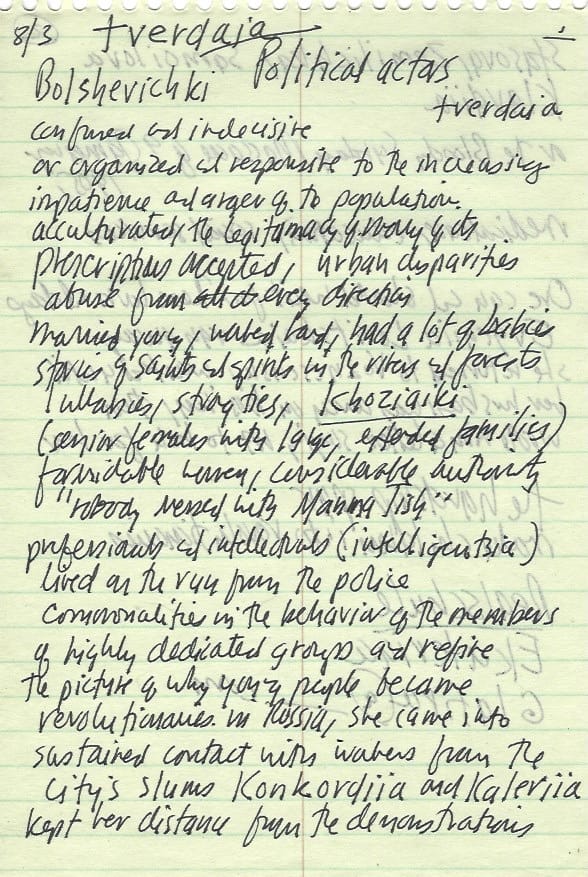 8/3 tverdaia 1
Bolshevichki Political actors
tverdaia
confused and indecisive
or organized and responsive to the increasing
impatience and anger of the population.
acculturated, the legitimacy of many of its
prescriptions accepted, urban disparities
abuse from every direction
married young, worked hard, had a lot of babies
stories of saints and spirits in the rivers and forests
lullabies, strong ties, khoziaiki
(senior females with large, extended families)
formidable women, considerable authority
"nobody messed with Mamma Tish"
professionals and intellectuals (intelligentsia)
lived on the run from the police
commonalities in the behavior of the members
of highly dedicated groups and refine
the picture of why young people became
revolutionaries in Russia, she came into
sustained contact with workers from the
city's slums Konkordiia and Kaleriia
kept her distance from the demonstrations